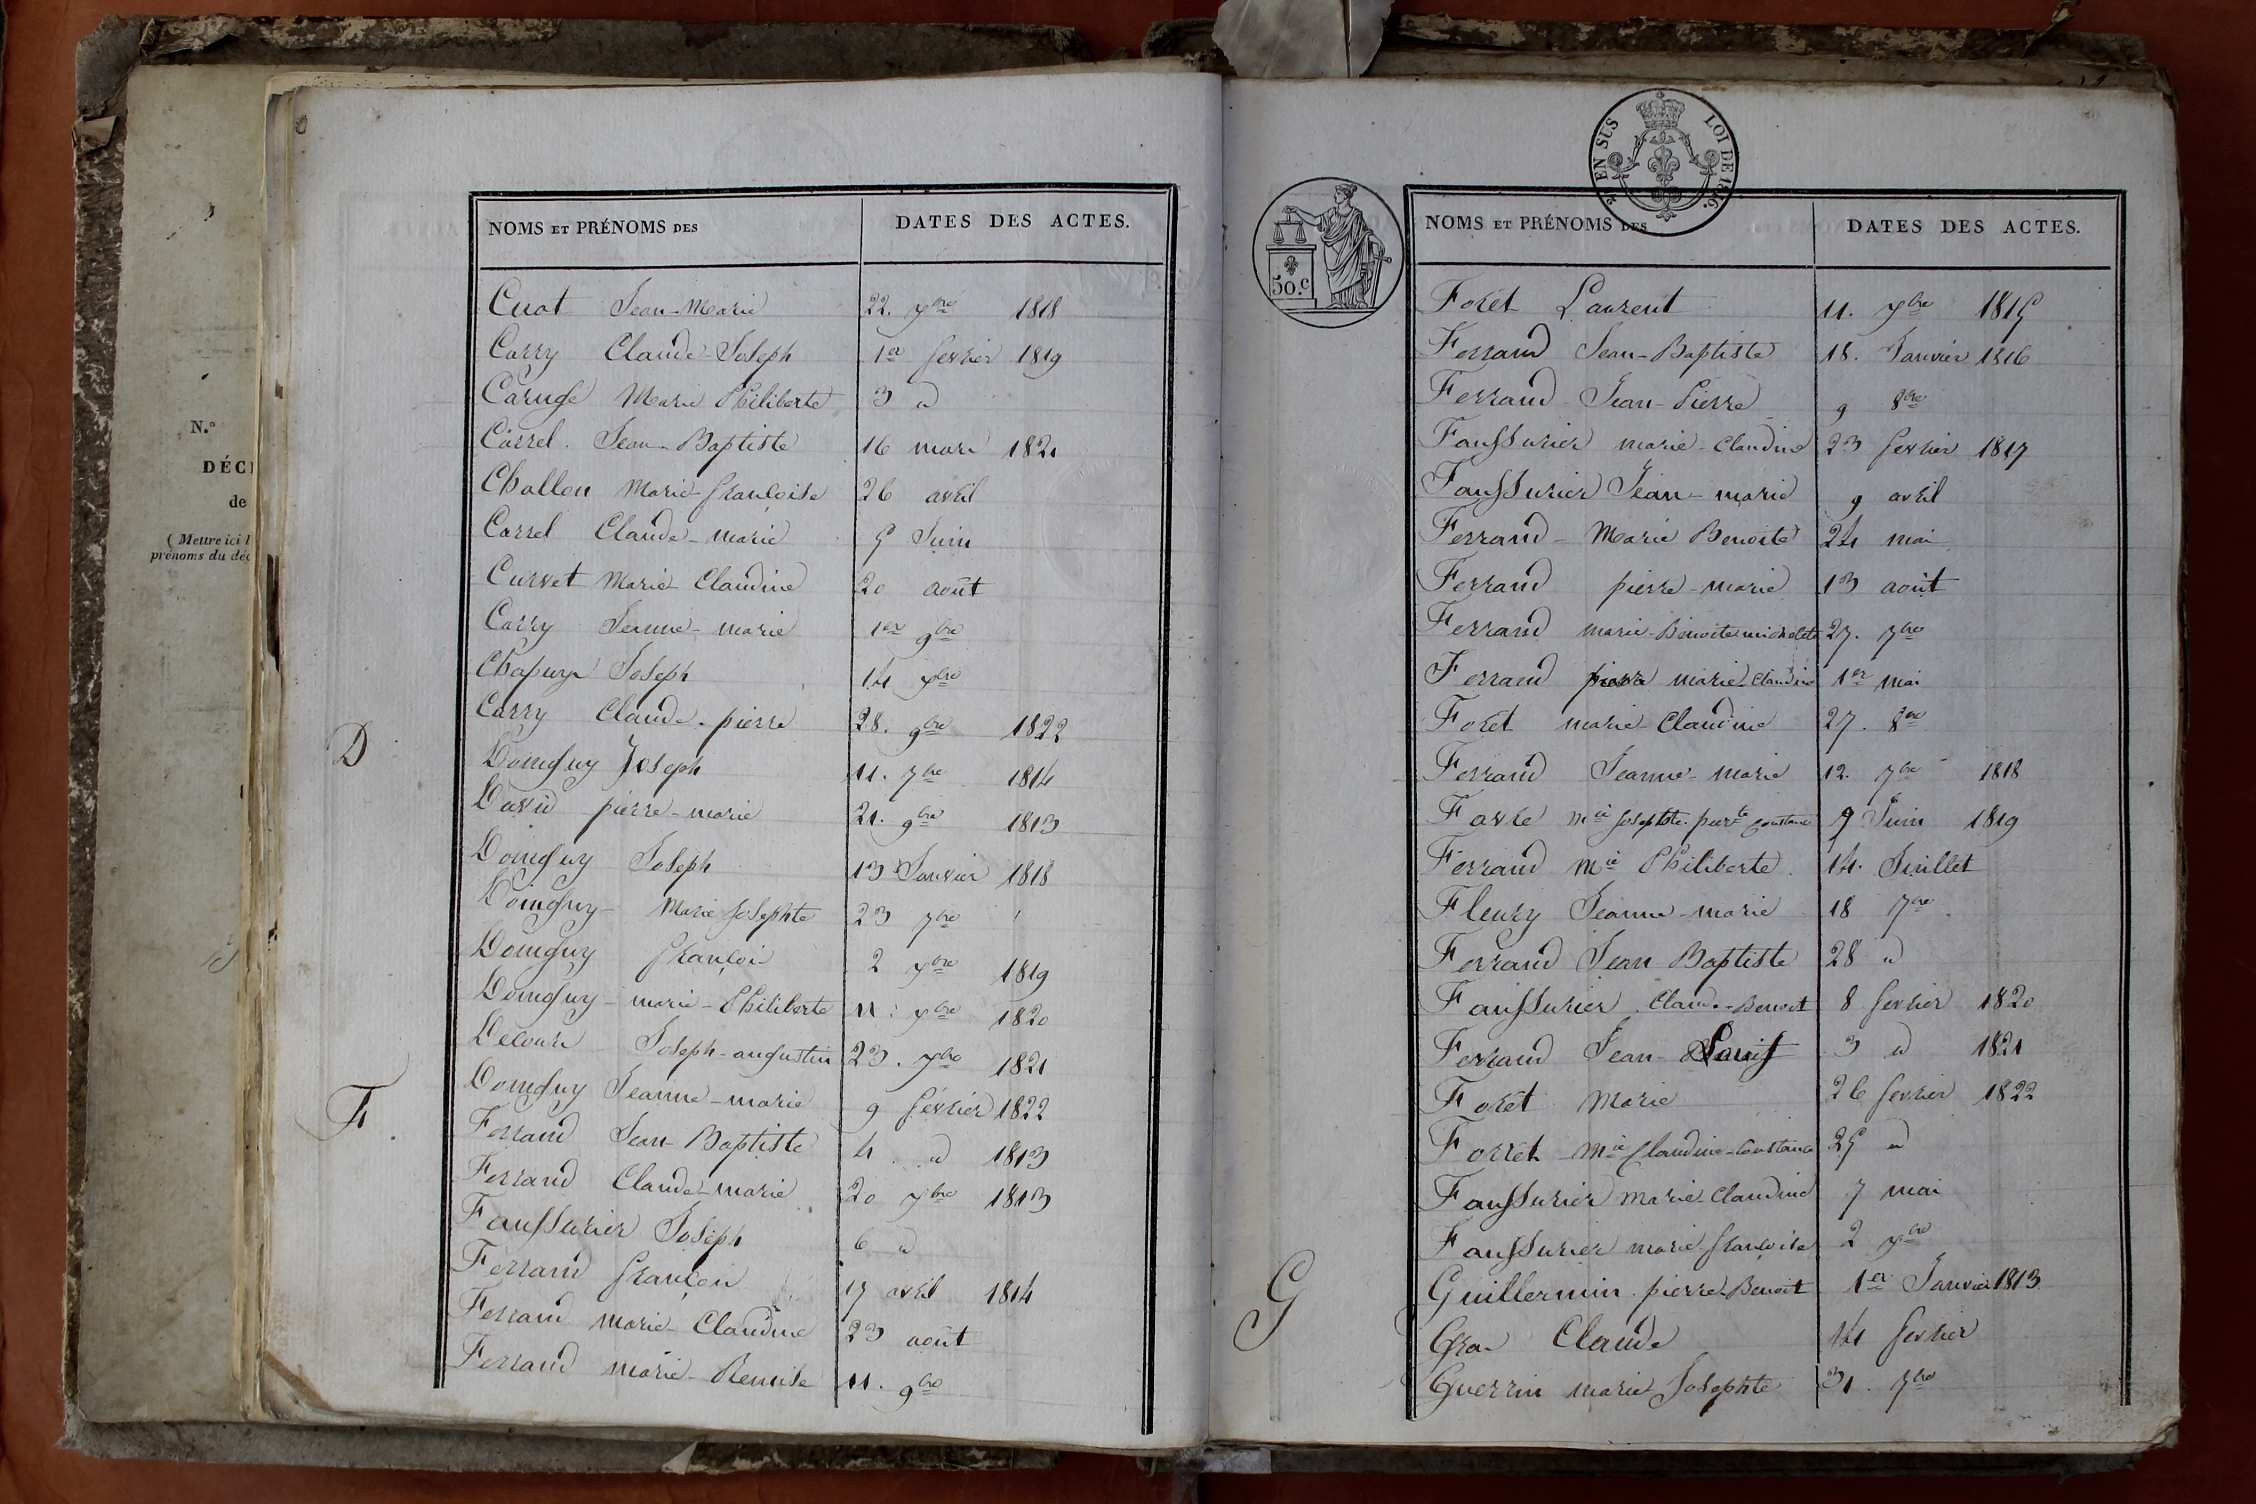 N.°
DÉC
de
( Mettre ici l
prénoms du déc
NOMS ET PRÉNOMS DES DATES DES ACTES.
Cuat Jean-Marie 22. xbre 1818
Carry Claude-Joseph 1er fevrier 1819
Caruge Marie Philiberte 3 d
Carrel Jean-Baptiste 16 mars 1821
Challon Marie-françoise 26 avril
Carrel Claude-marie 5 Juin
Curvet Marie Claudine 20 août
Carry Jeanne-marie 1er 9bre
Chapuyn Joseph 14 xbre
Carry Claude-pierre 28. 9bre 1822
D
Domguy Joseph 11. 7bre 1814
David pierre-marie 21. 9bre 1813
Domguy Joseph 13 Janvier 1818
Domguy Marie Josephte 23 7bre
Domguy françois 2 xbre 1819
Domguy-marie-Philiberte 11. xbre 1820
Decours Joseph-augustin 23. xbre 1821
Domguy Jeanne-marie 9 février 1822
F
Ferrand Jean-Baptiste 4 d 1813
Ferrand Claude-marie 20 xbre 1813
Faussurier Joseph 6 d
Ferrand françois 17 avril 1814
Ferrand marie-Claudine 23 août
Ferrand marie-Denise 11. 9bre
2 EN SUS LOI DE 1816.
50.c
NOMS ET PRÉNOMS DES DATES DES ACTES.
Forêt Laurent 11. xbre 1815
Ferrand Jean-Baptiste 18. Janvier 1816
Ferrand Jean-Pierre 9 8bre
Faussurier marie-Claudine 23 fevrier 1817
Faussurier Jean-marie 9 avril
Ferrand-Marie Benoite 24 mai
Ferrand pierre-marie 13 août
Ferrand marie-Benoite michelete 27. 7bre
Ferrand marie-Claudine 1er mai
Forêt marie-Claudine 27. 8bre
Ferrand Jeanne-marie 12. 7bre 1818
Favre mie Josephte. constance 9 Juin 1819
Ferrand mie Philiberte 14. Juillet
Fleury Jeanne-marie 18 7bre
Ferrand Jean Baptiste 28 d
Faussurier Claude-Benoit 8 fevrier 1820
Ferrand Jean-Louis 3 d 1821
Forêt Marie 26 fevrier 1822
Forrêt mie Claudine-Constance 25 d
Faussurier marie Claudine 7 mai
Faussurier marie françoise 2 xbre
G
Guillermin pierre Benoit 1er Janvier 1813
Gra Claude 14 fevrier
Guerrin marie Josephte 31. 7bre